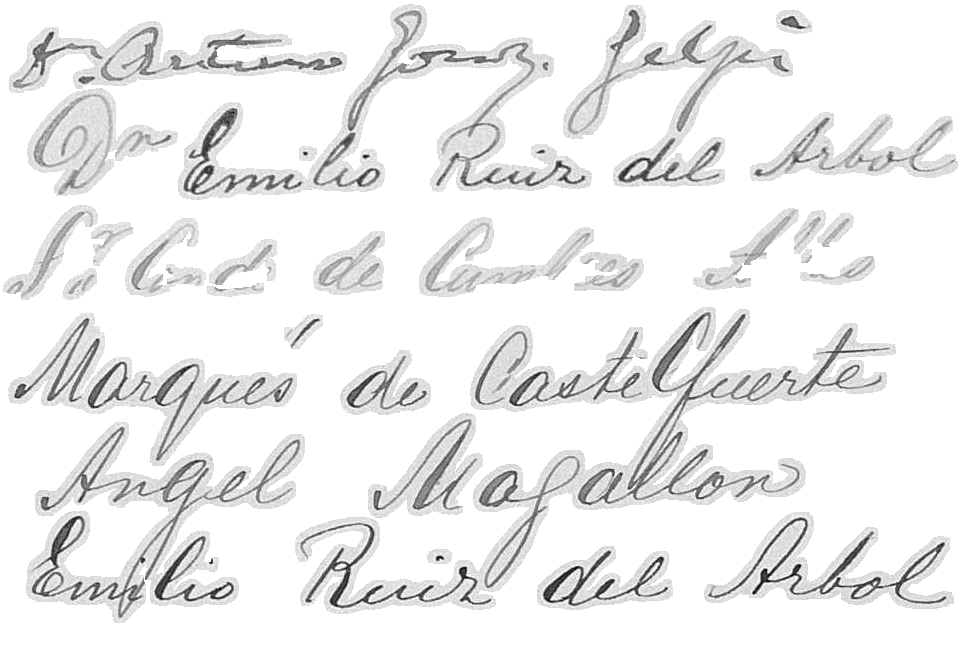 Dn. Arturo Gonz. Gelpi
Dn Emilio Ruiz del Arbol
Sr Conde de Cumbres
Marqués de Castelfuerte
Angel Magallon
Emilio Ruiz del Arbol